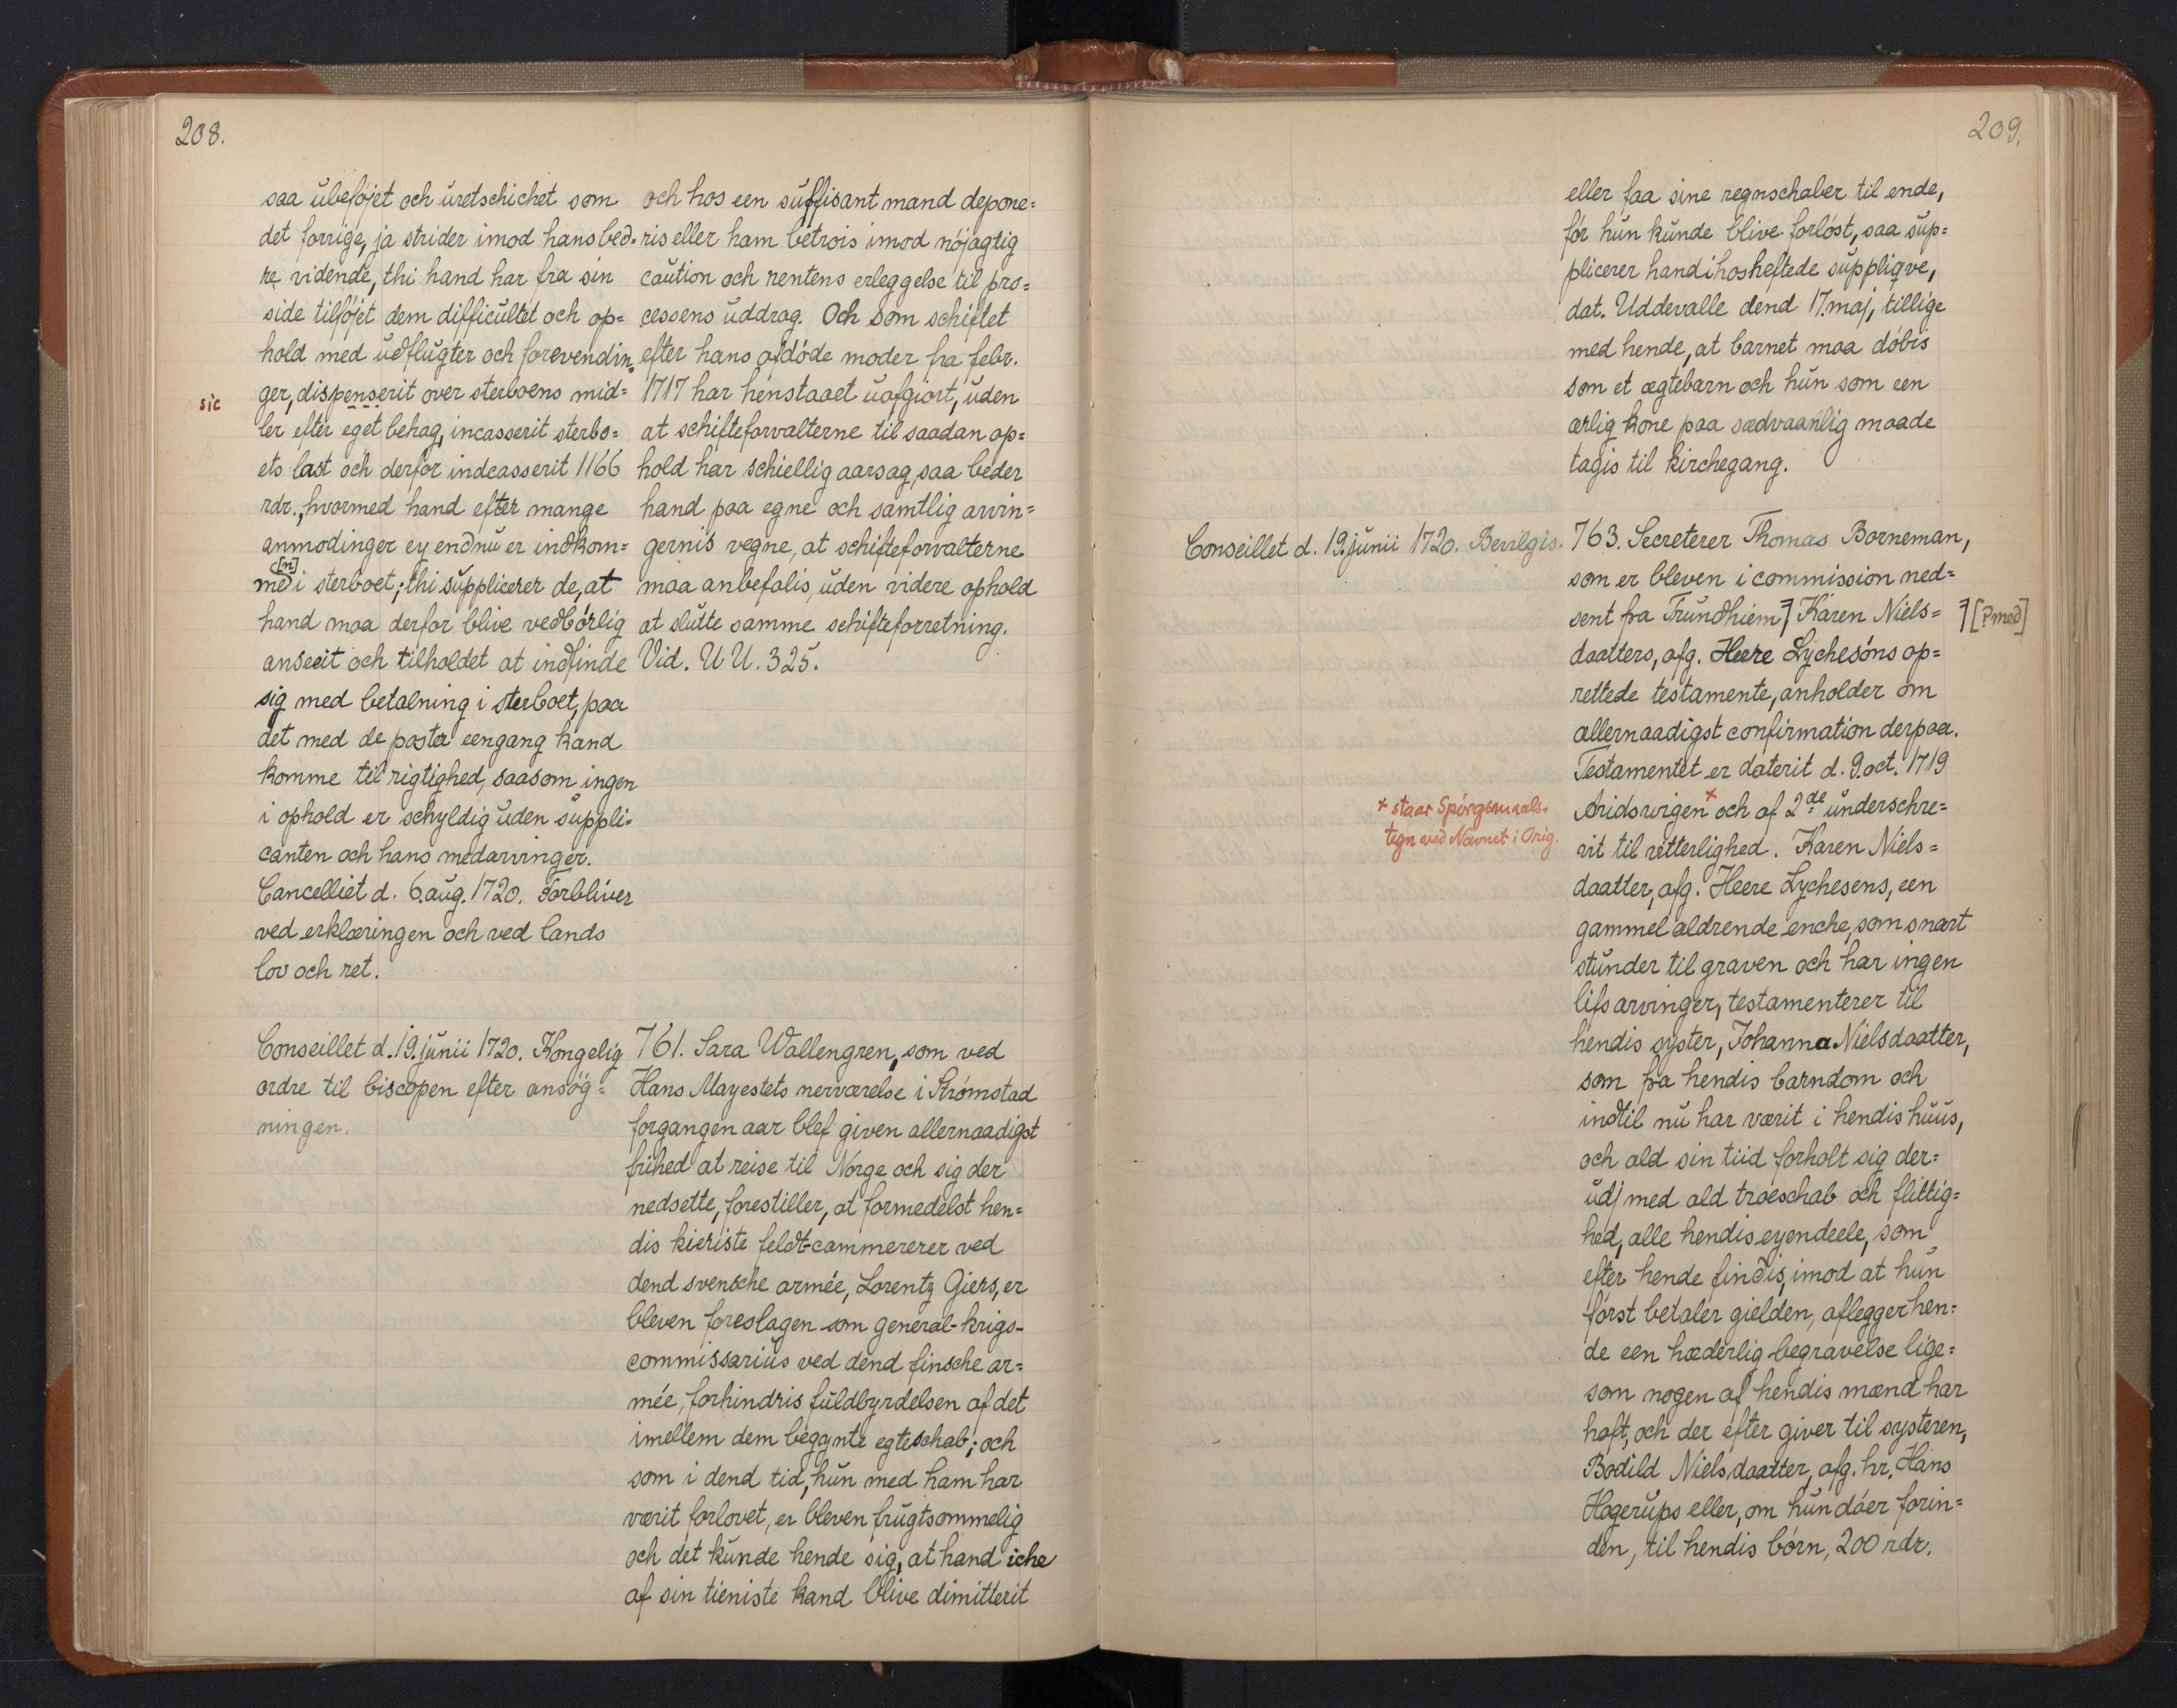 208.
saa ubeføjet och uretschichet som
det forrige, ja strider imod hans bed-
re vidende, thi hand har fra sin
side tilføjet dem difficultet och op=
hold med udflugter och forevendin=
sic
ger, dispenserit over sterboens mid=
ler efter eget behag, incasserit sterbo=
ets last och derfor indcasserit 1166
rdr., hvormed hand efter mange
anmodinger ey endnu er indkom=
[n]
med i sterboet; thi supplicerer de, at
hand maa derfor blive vedbørlig
anseeit och tilholdet at indfinde
sig med betalning i sterboet, paa
det med de poster eengang kand
komme til rigtighed, saasom ingen
i ophold er schyldig uden suppli-
canten och hans medarvinger.
Cancelliet d. 6. aug. 1720. Forbliver
ved erklæringen och ved lands
lov och ret.
och hos een suffisant mand depone=
ris eller ham betrois imod nøjagtig
caution och rentens erleggelse til pro=
cessens uddrag. Och som schiftet
efter hans afdøde moder fra febr.
1717 har henstaaet uafgiort, uden
at schifteforvalterne til saadan op=
hold har schiellig aarsag, saa beder
hand paa egne och samtlig arvin=
gernis vegne, at schifteforvalterne
maa anbefalis, uden videre ophold
at slutte samme schifteforretning.
Vid. U U. 325.
Conseillet d. 19. junii 1720. Kongelig
ordre til biscopen efter ansög=
ningen.
761. Sara Wallengren, som ved
Hans Mayestets nerværelse i Strømstad
forgangen aar blef given allernaadigst
frihed at reise til Norge och sig der
nedsette, forestiller, at formedelst hen=
dis kieriste feldt-cammererer ved
dend svensche armée, Lorentz Giers, er
bleven foreslagen som general-krigs-
commissarius ved dend finsche ar=
mée, forhindris fuldbyrdelsen af det
imellem dem begynte egteschab; och
som i dend tid, hun med ham har
værit forlovet, er bleven frugtsommelig
och det kunde hende sig, at hand iche
af sin tieniste kand blive dimitterit
209.
eller faa sine regnschaber til ende,
før hun kunde blive forløst, saa sup=
plicerer hand i hosheftede suppliqve,
dat. Uddevalle dend 17. maj, tillige
med hende, at barnet maa døbis
som et ægtebarn och hun som een
ærlig kone paa sædvaanlig maade
tagis til kirchegang.
Conseillet d. 19. junii 1720. Bevilgis.
763. Secreterer Thomas Borneman,
som er bleven i commission ned=
sent fra Trundhiem ⁊ Karen Niels= ⁊ [?med]
daatters, afg. Heere Lychesøns op=
rettede testamente, anholder om
allernaadigst confirmation derpaa.
Testamentet er daterit d. 9. oct. 1719
+ staar Spørgsmaals-
tegn ved Navnet i Orig.
Aridsvigen + och af 2de underschre=
vit til vitterlighed. Karen Niels=
daatter, afg. Heere Lychesens, een
gammel aldrende enche, som snart
stunder til graven och har ingen
lifsarvinger, testamenterer til
hendis syster, Johanna Nielsdaatter,
som fra hendis barndom och
indtil nu har værit i hendis huus,
och ald sin tiid forholt sig der=
udj med ald troeschab och flittig=
hed, alle hendis eyendeele, som
efter hende findis, imod at hun
først betaler gielden, aflegger hen=
de een hæderlig begravelse lige=
som nogen af hendis mænd har
haft, och der efter giver til systeren,
Bodild Nielsdaatter, afg. hr. Hans
Hagerups eller, om hun døer forin=
den, til hendis børn, 200 rdr.